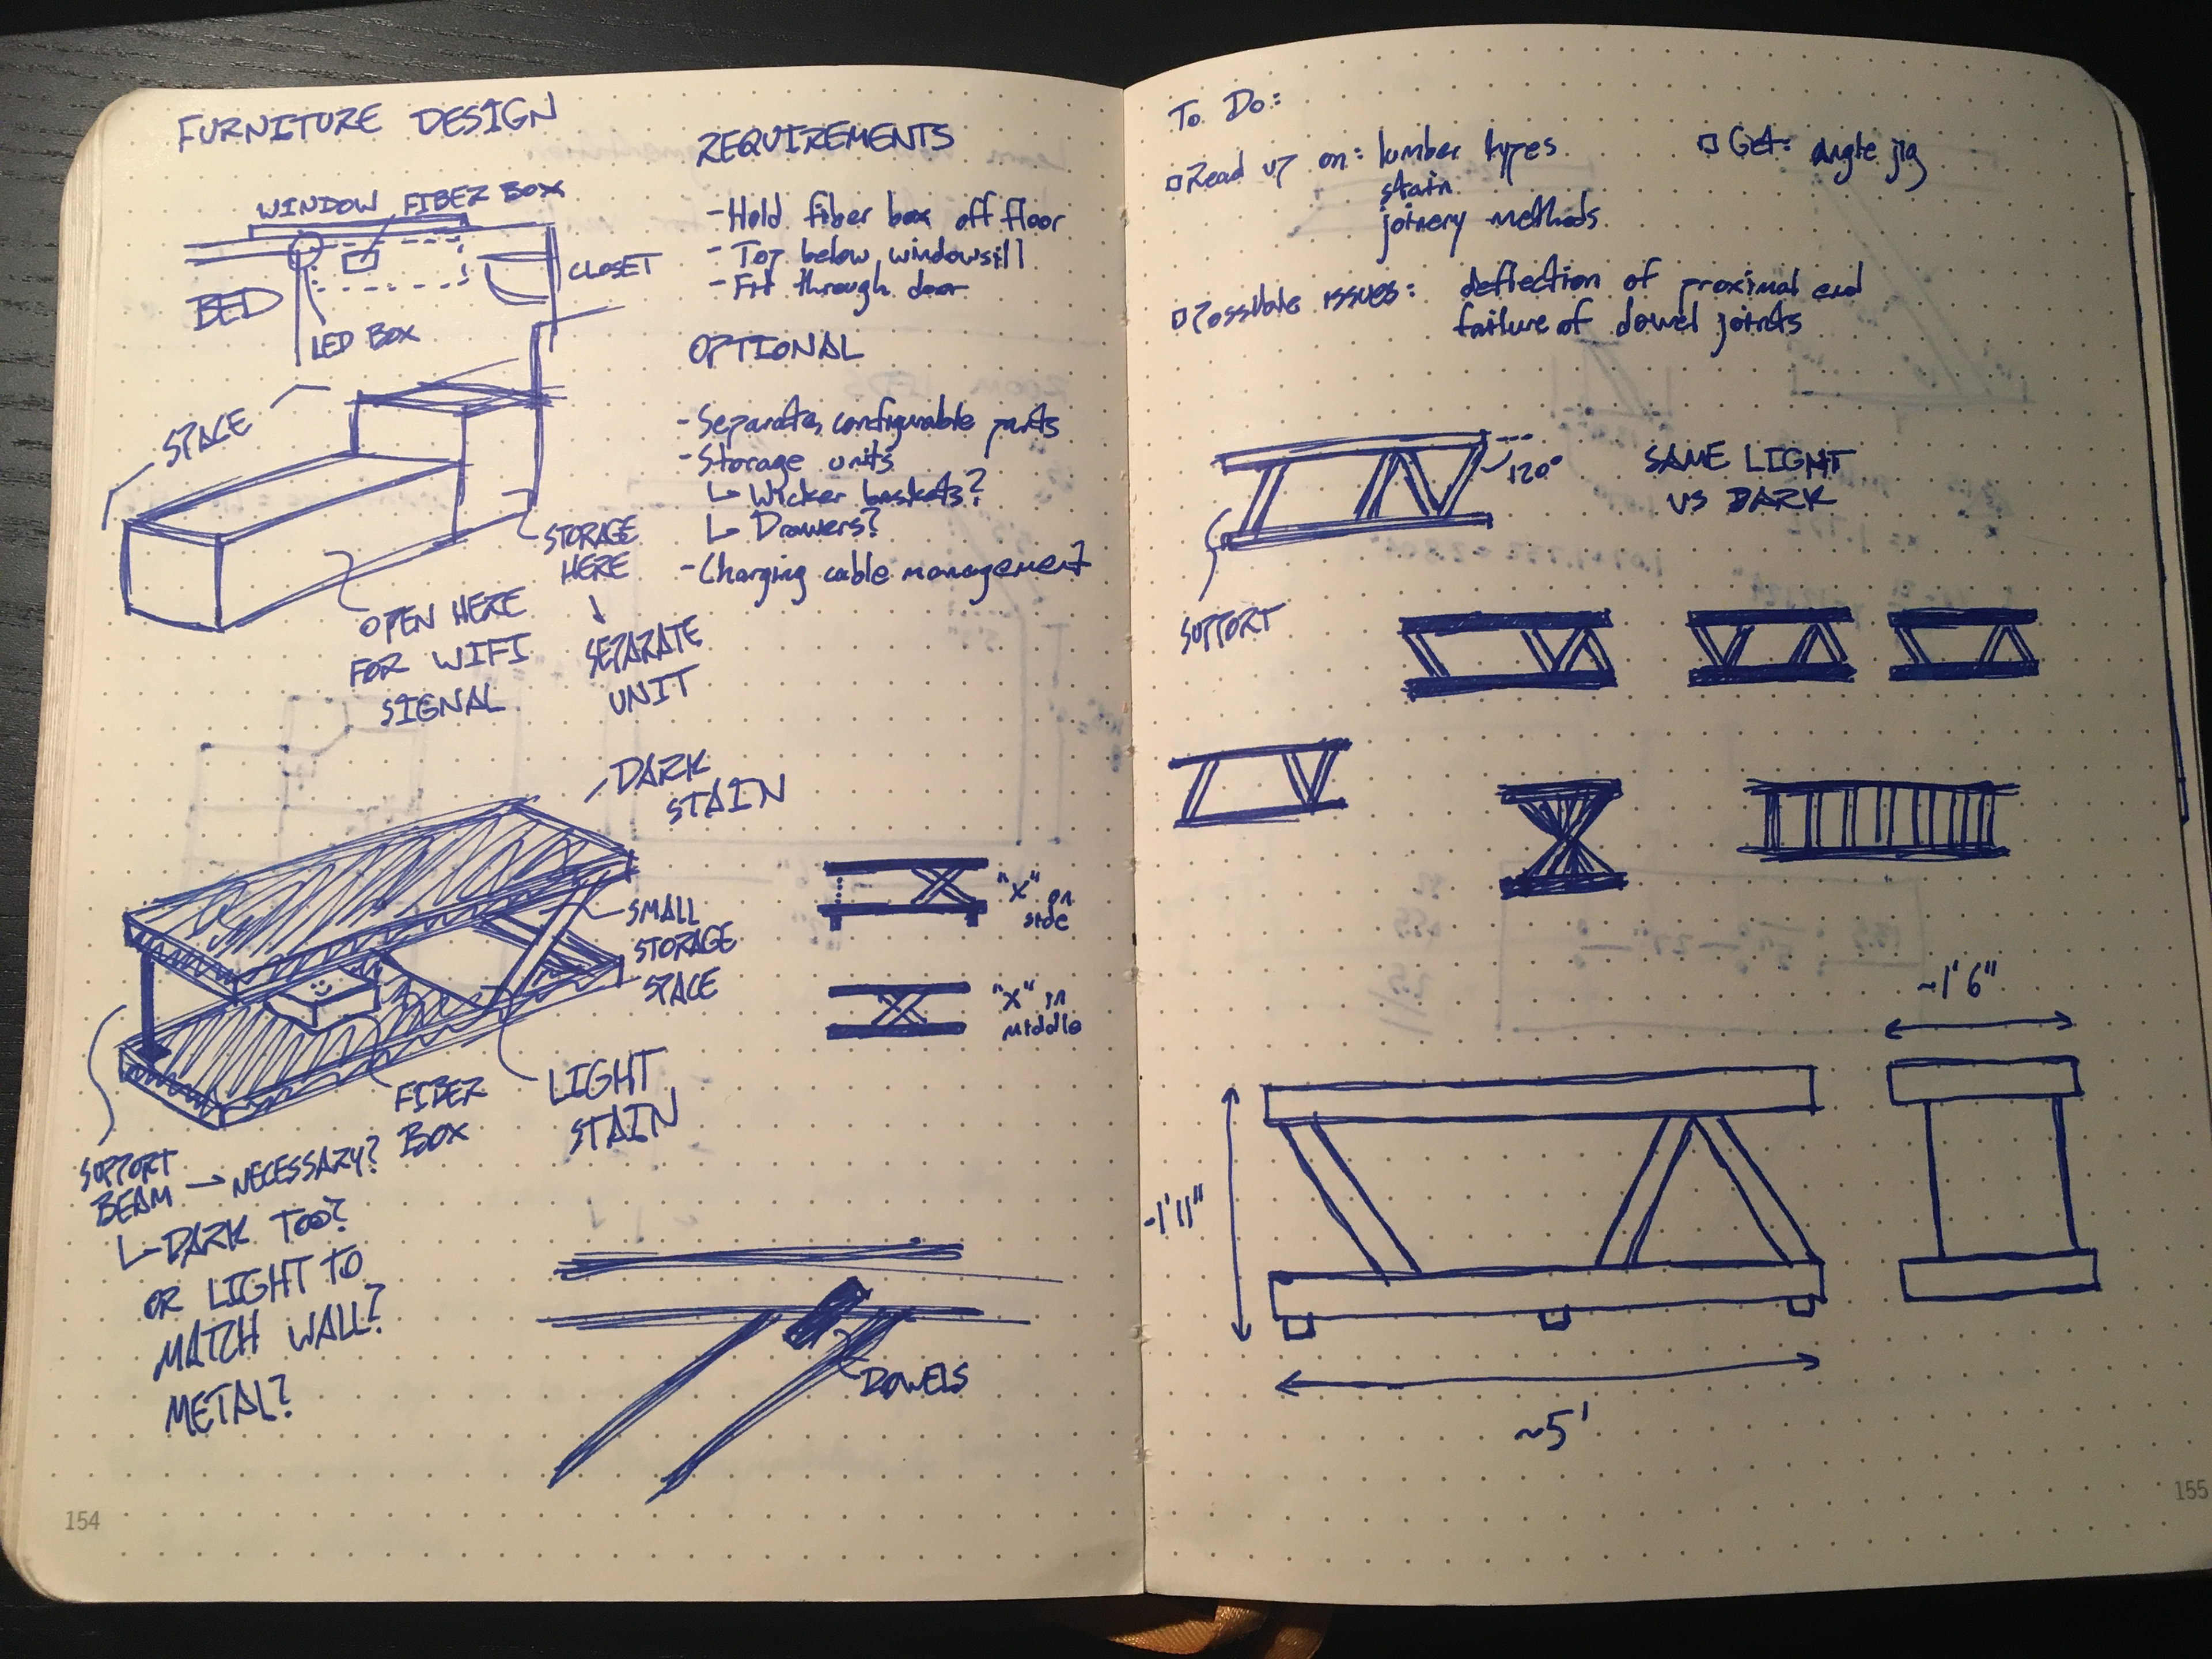 FURNITURE DESIGN
WINDOW FIBER BOX
CLOSET
BED
LED BOX
REQUIREMENTS
- Hold fiber box off floor
- Top below windowsill
- Fit through door
OPTIONAL
- Separate, configurable parts
- Storage units
↳ Wicker baskets?
↳ Drawers?
- Charging cable management
SPACE
STORAGE
HERE
↓
SEPARATE
UNIT
OPEN HERE
FOR WIFI
SIGNAL
DARK
STAIN
SMALL
STORAGE
SPACE
"X" on
side
"X" in
middle
FIBER
BOX
LIGHT
STAIN
SUPPORT
BEAM → NECESSARY?
↳ DARK TOO?
OR LIGHT TO
MATCH WALL?
METAL?
DOWELS
154
To Do:
□ Read up on: lumber types
stain
joinery methods
□ Get: angle jig
□ Possible issues: deflection of proximal end
failure of dowel joints
120°
SAME LIGHT
VS DARK
SUPPORT
~1'6"
~1'11"
~5'
155